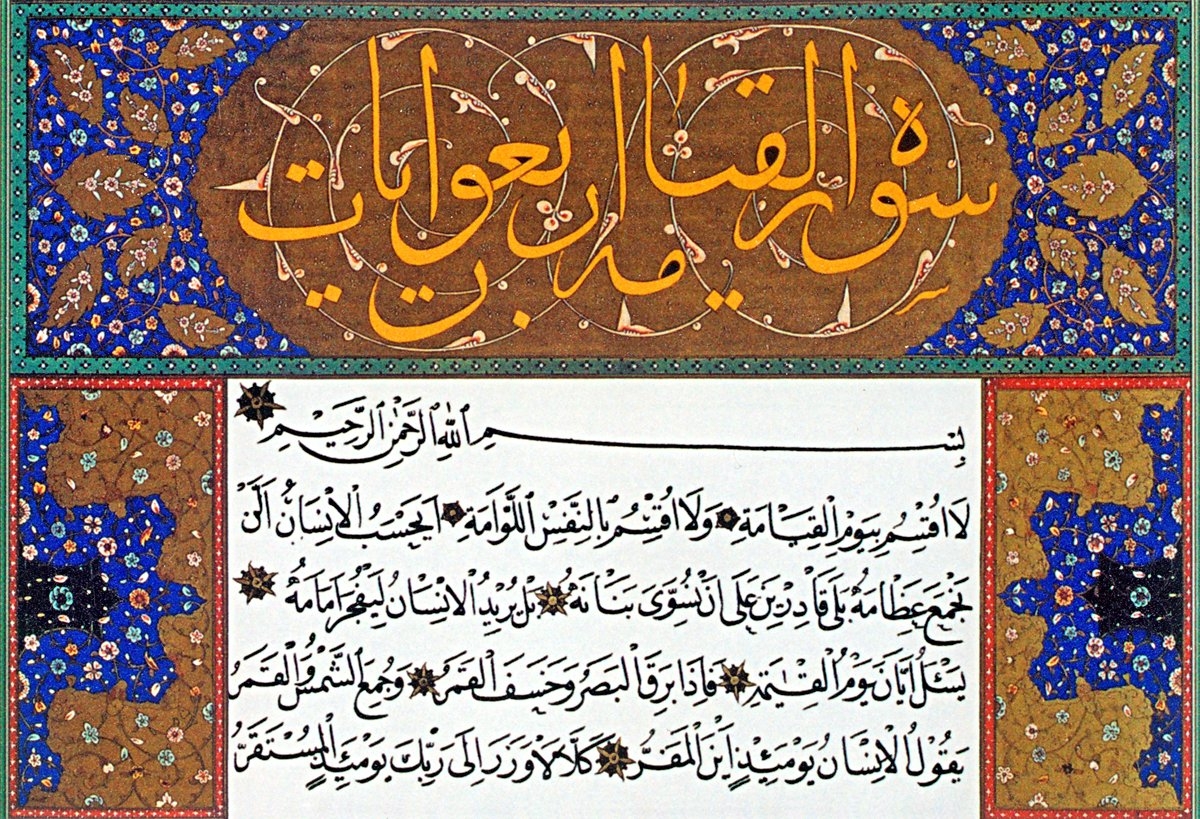 سورة القيامة اربعون ايات
بِسْمِ ٱللّٰهِ ٱلرَّحْمٰنِ ٱلرَّحِيمِ
لَا اُقْسِمُ بِيَوْمِ الْقِيَامَةِ وَلَا اُقْسِمُ بِالنَّفْسِ اللَّوَّامَةِ اَيَحْسَبُ الْاِنْسَانُ اَلَّنْ
نَجْمَعَ عِظَامَهُ بَلٰى قَادِرِينَ عَلٰى اَنْ نُسَوِّىَ بَنَانَهُ بَلْ يُرِيدُ الْاِنْسَانُ لِيَفْجُرَ اَمَامَهُ
يَسْئَلُ اَيَّانَ يَوْمُ الْقِيٰمَةِ فَاِذَا بَرِقَ الْبَصَرُ وَخَسَفَ الْقَمَرُ وَجُمِعَ الشَّمْسُ وَالْقَمَرُ
يَقُولُ الْاِنْسَانُ يَوْمَئِذٍ اَيْنَ الْمَفَرُّ كَلَّا لَا وَزَرَ اِلٰى رَبِّكَ يَوْمَئِذٍ الْمُسْتَقَرُّ